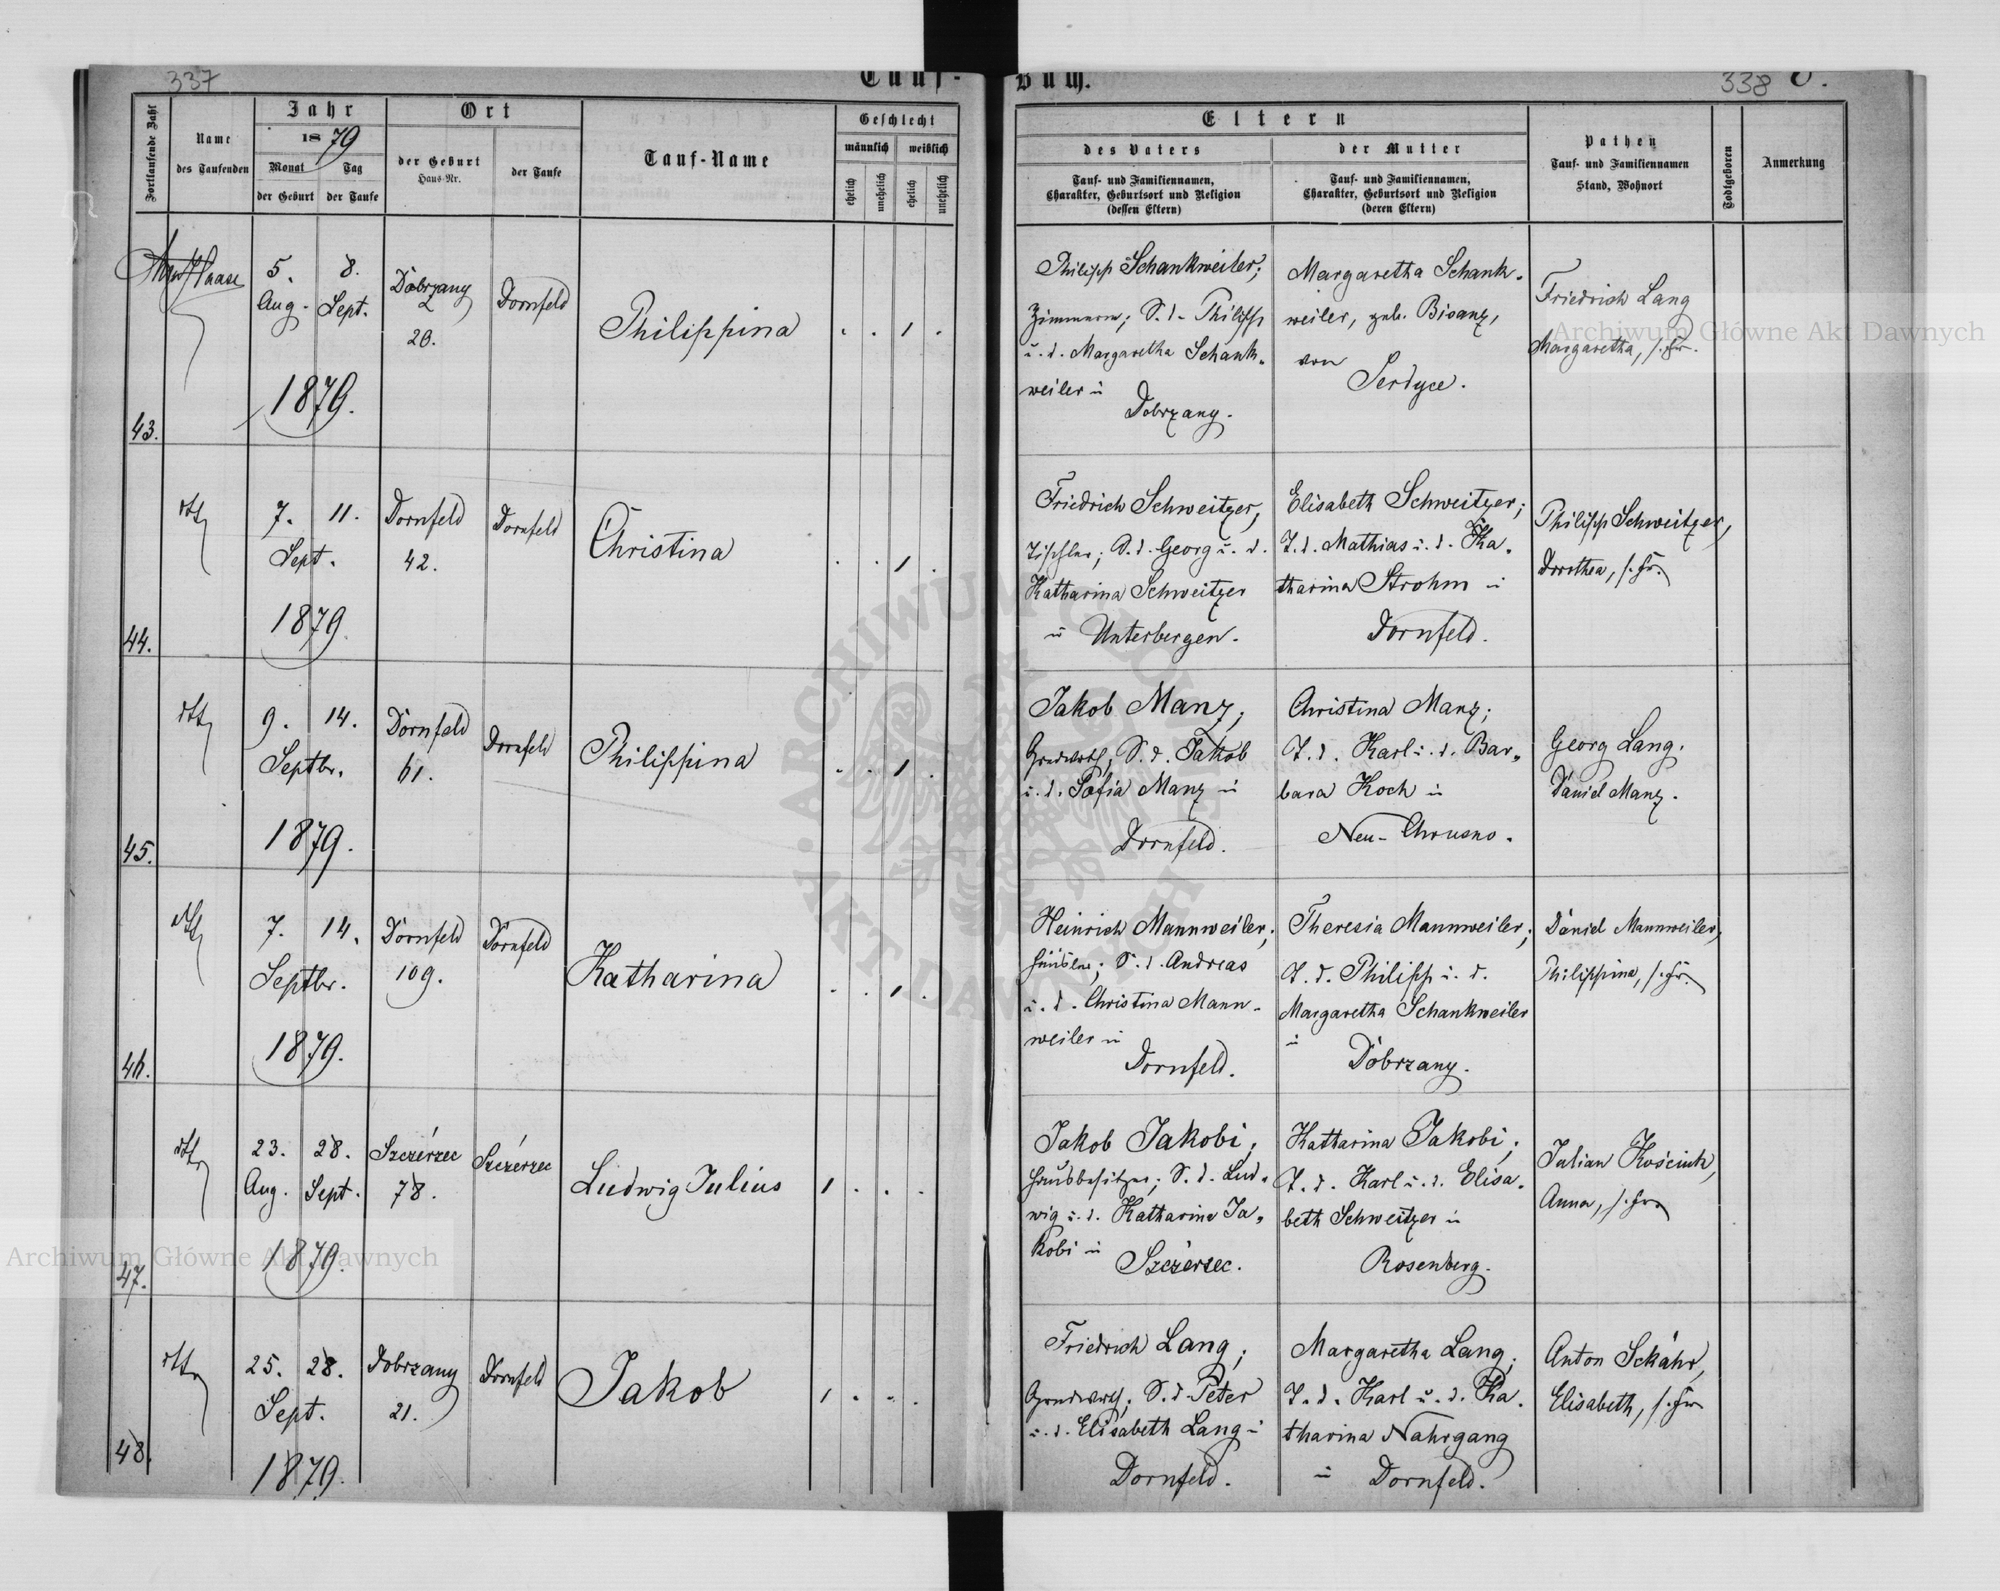 337
Tauf-
Buch.
338
Fortlaufende Zahl
Name
des Taufenden
Jahr
1879
Monat
Tag
der Geburt
der Taufe
Ort
der Geburt
Haus-Nr.
der Taufe
Tauf-Name
Geschlecht
männlich
weiblich
ehelich
unehelich
ehelich
unehelich
Eltern
des Vaters
Tauf- und Familiennamen,
Charakter, Geburtsort und Religion
(dessen Eltern)
der Mutter
Tauf- und Familiennamen,
Charakter, Geburtsort und Religion
(deren Eltern)
Pathen
Tauf- und Familiennamen
Stand, Wohnort
Todtgeboren
Anmerkung
43.
Haase
5.
Aug.
8.
Sept.
1879.
Dobrzany
20.
Dornfeld
Philippina
1
Philipp Schankweiler;
Zimmerm; S. d. Philipp
u. d. Margaretha Schank-
weiler in
Dobrzany.
Margaretha Schank-
weiler, geb. Bisanz,
von
Serdyce.
Friedrich Lang
Margaretha, s. Fr.
44.
dtto
7.
11.
Sept.
1879.
Dornfeld
42.
Dornfeld
Christina
1
Friedrich Schweitzer,
Tischler; S. d. Georg u. d.
Katharina Schweitzer
in Unterbergen.
Elisabeth Schweitzer;
T. d. Mathias u. d. Ka-
tharina Strohm in
Dornfeld.
Philipp Schweitzer,
Dorothea, s. Fr.
45.
dtto
9.
14.
Septbr.
1879.
Dornfeld
61.
Dornfeld
Philippina
1
Jakob Manz;
Grundwrth; S. d. Jakob
u. d. Sofia Manz in
Dornfeld.
Christina Manz;
T. d. Karl u. d. Bar-
bara Koch in
Neu-Chrusno.
Georg Lang.
Daniel Manz.
46.
dtto
7.
14.
Septbr.
1879.
Dornfeld
109.
Dornfeld
Katharina
1
Heinrich Mannweiler;
Häusler; S. d. Andreas
u. d. Christina Mann-
weiler in
Dornfeld.
Theresia Mannweiler;
T. d. Philipp u. d.
Margaretha Schankweiler
in
Dobrzany.
Daniel Mannweiler,
Philippina, s. Fr.
47.
dtto
23.
Aug.
28.
Sept.
1879.
Szczérzec
78.
Szczérzec
Ludwig Julius
1
Jakob Jakobi;
Hausbesitzer; S. d. Lud-
wig u. d. Katharina Ja-
kobi in
Szczérzec.
Katharina Jakobi;
T. d. Karl u. d. Elisa-
beth Schweitzer in
Rosenberg.
Julian Kościuk,
Anna, s. Fr.
48.
dtto
25.
28.
Sept.
1879.
Dobrzany
21.
Dornfeld
Jakob
1
Friedrich Lang;
Grundwrth; S. d. Peter
u. d. Elisabeth Lang in
Dornfeld.
Margaretha Lang;
T. d. Karl u. d. Ka-
tharina Nahrgang
in Dornfeld.
Anton Schähr,
Elisabeth, s. Fr.
Archiwum Główne Akt Dawnych
Archiwum Główne Akt Dawnych